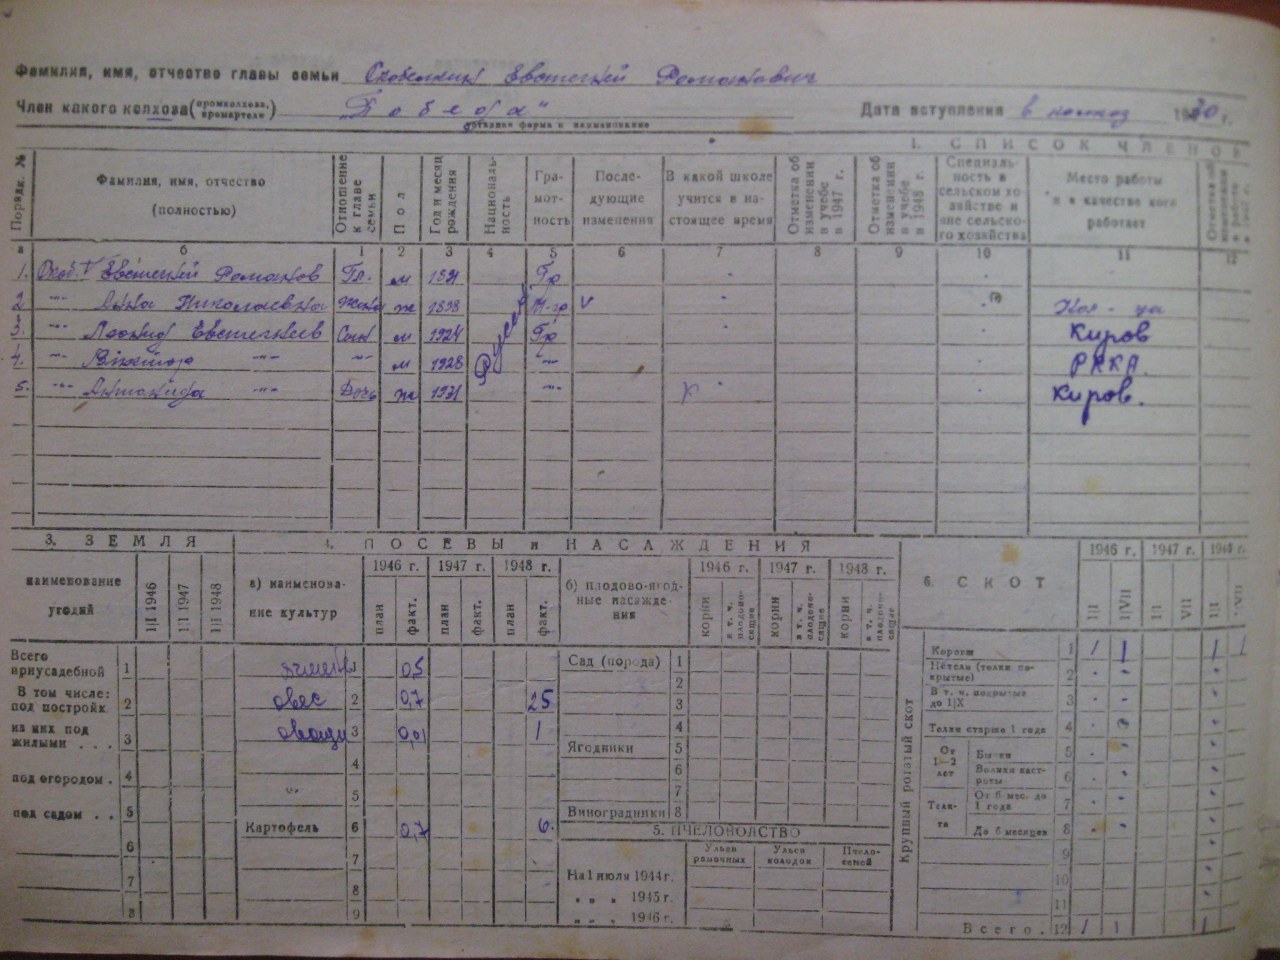 Фамилия, имя, отчество главы семьи Скобелкин Евстегней Романович
Член какого колхоза (промколхоза, промартели) „Победа" Дата вступления в колхоз 1930 г.
уставная форма и наименование
1. СПИСОК ЧЛЕНОВ
Порядк. № Фамилия, имя, отчество (полностью) Отношение к главе семьи Пол Год и месяц рождения Националь-ность Гра-мот-ность После-дующие изменения В какой школе учится в на-стоящее время Отметка об изменении в учебе в 1947 г. Отметка об изменении в учебе в 1948 г. Специаль-ность в сельском хо-зяйстве и вне сельско-го хозяйства Место работы и в качестве кого работает
а б 1 2 3 4 5 6 7 8 9 10 11 12
1. Скоб. Евстегней Романов Гл. м 1891 Гр
2 -"- Анна Николаевна жена ж 1898 М-гр v
3. -"- Леонид Евстегнеев Сын м 1924 Русские Гр Киров
4. -"- Виктор -"- -"- м 1928 -"- РККА.
5. -"- Антонида -"- Дочь ж 1931 -"- Киров.
3. ЗЕМЛЯ 4. ПОСЕВЫ и НАСАЖДЕНИЯ 6. СКОТ
наименование угодий 1|I 1946 1|I 1947 1|I 1948
а) наименова-ние культур 1946 г. 1947 г. 1948 г.
план факт. план факт. план факт.
б) плодово-ягод-ные насажде-ния 1946 г. 1947 г. 1948 г.
корни в т. ч. плодоно-сящие корни в т. ч. плодоно-сящие корни в т. ч. плодоно-сящие
1946 г. 1947 г. 1948 г.
1|I 1|VII 1|I VII 1|I 1|VII
Всего приусадебной 1 ячмень 0,5 Сад (порода) 1
В том числе: под постройк. 2 овес 2 0,7 25 2 3
из них под жилыми . . . 3 овощи 3 0,01 1 4
под огородом . 4 4 Ягодники 5
под садом . . 5 5 6 7
6 Картофель 6 0,7 6. Виноградники 8
7 7
8 8
9 9
5. ПЧЕЛОВОДСТВО
Ульев рамочных Ульев колодок Пчело-семей
На 1 июля 1944 г.
" " " 1945 г.
" " " 1946 г.
Крупный рогатый скот
Коровы 1 1 1 1 1
Нетели (телки по-крытые) 2
В т. ч. покрытые до 1|X 3
Телки старше 1 года 4
От 1—2 лет Бычки 5
Волики каст-раты 6
Теля-та От 6 мес. до 1 года 7
До 6 месяцев 8
9
10
11
Всего . 12 1 1 1